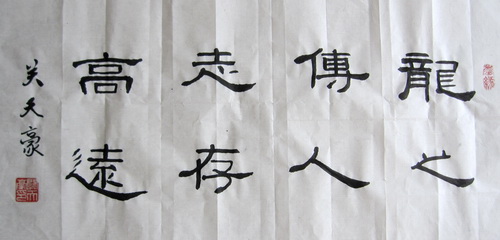 龍之
傳人
志存
高遠
关天豪